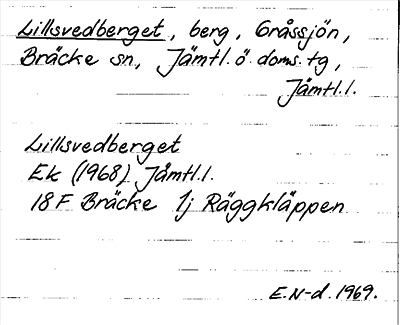 Lillsvedberget, berg, Gråssjön,
Bräcke sn, Jämtl. ö doms. tg,
Jämtl.l.
Lillsvedberget
Ek (1968) Jämtl.l.
18 F Bräcke 1j Räggkläppen
E.N-d. 1969.